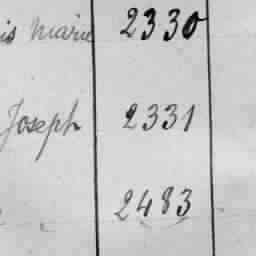 is Marie 2330
Joseph 2331
2483